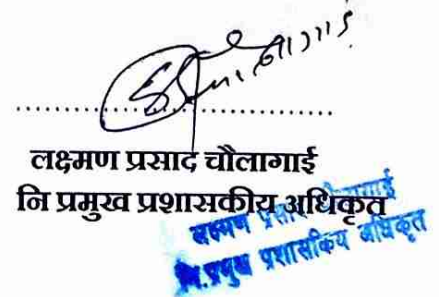 ....................................
लक्ष्मण प्रसाद चौलागाई
नि प्रमुख प्रशासकीय अधिकृत
लक्ष्मण प्रसाद चौलागाई
नि.प्रमुख प्रशासकिय अधिकृत